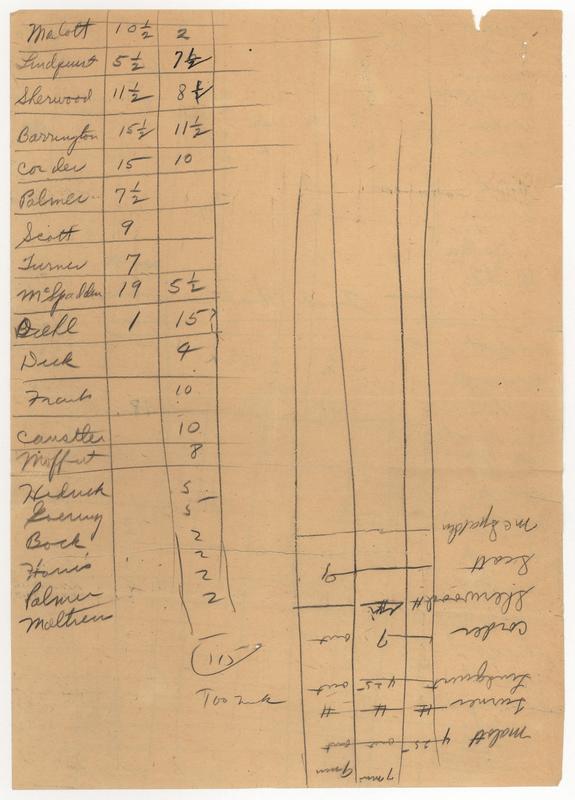 Malott 10½ 2
Lindquist 5½ 7½
Sherwood 11½ 8½
Barrington 15½ 11½
Corder 15 10
Palmer 7½
Scott 9
Turner 7
McSpadden 19 5½
Diehl 1 15?
Dick 4
Frank 10
10
Moffut 8
Hedrick 5
5
Bock 2
Harris 2
Palmer 2
2
115
McSpadden
Scott 9
Sherwood
Corder 7 out
Lindquist 4 25 out
Turner
Malott 4 25 out out
7 min 9 min